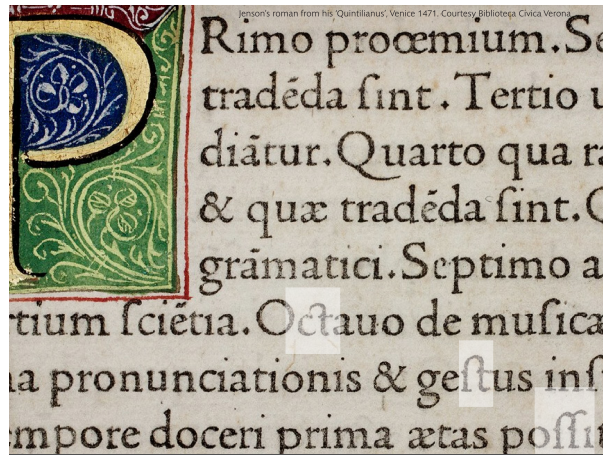 Jenson's roman from his 'Quintilianus', Venice 1471. Courtesy Biblioteca Civica Verona
PRimo proœmium. Se
tradēda ſint. Tertio u
diātur. Quarto qua ra
& quæ tradēda ſint. Q
grāmatici. Septimo a
rtium ſciētia. Octauo de muſica
na pronunciationis & geſtus inſ
empore doceri prima ætas poſſit